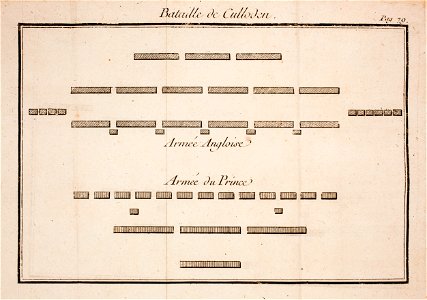 Bataille de Culloden.
Pag. 79.
Armée Angloise
Armée du Prince